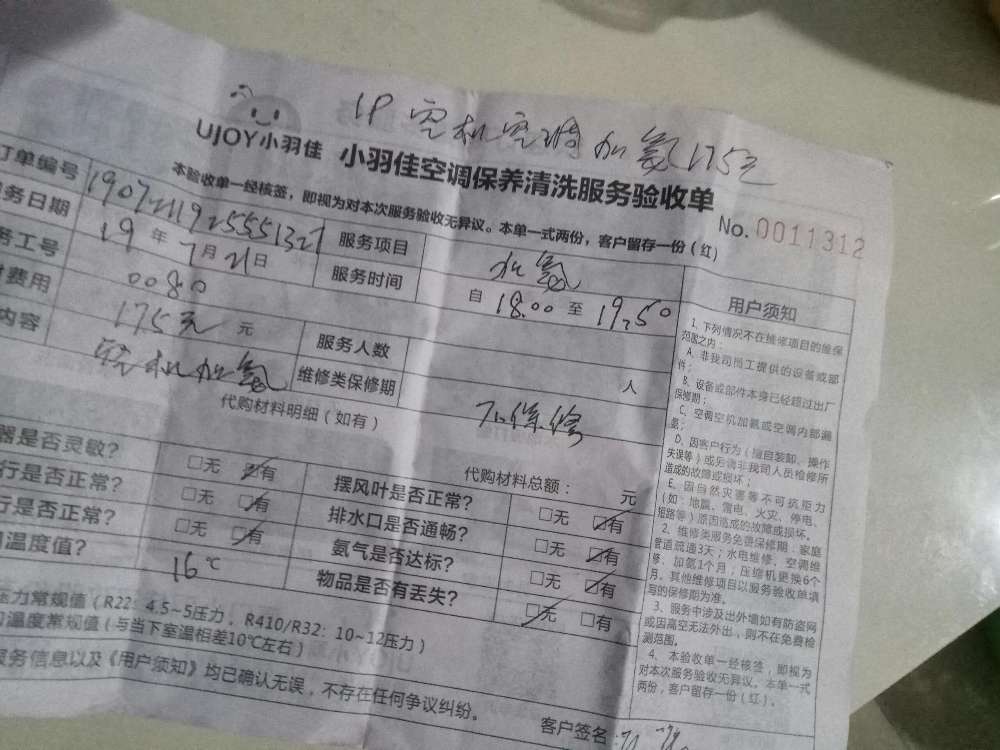 1P 空机空调加氨175元
UJOY小羽佳 小羽佳空调保养清洗服务验收单
本验收单一经核签，即视为对本次服务验收无异议。本单一式两份，客户留存一份（红）
No. 0011312
订单编号 1907211925551327 服务项目 加氨
务日期 19年7月21日 服务时间 自 18.00 至 19.50
务工号 0080 服务人数 人
费用 175元 元 维修类保修期 不保修
内容 空机加氨
代购材料明细（如有） 代购材料总额： 元
器是否灵敏？ □无 □有 摆风叶是否正常？ □无 □有
行是否正常？ □无 □有 排水口是否通畅？ □无 □有
行是否正常？ □无 □有 氨气是否达标？ □无 □有
温度值？ 16℃ 物品是否有丢失？ □无 □有
压力常规值（R22：4.5~5压力，R410/R32：10~12压力）
温度常规值（与当下室温相差10℃左右）
服务信息以及《用户须知》均已确认无误，不存在任何争议纠纷。
客户签名：
用户须知
1、下列情况不在维修项目的维保
范围之内：
A、非我司员工提供的设备或部
件；
B、设备或部件本身已经超过出厂
保修期；
C、空调空机加氨或空调内部漏
氨；
D、因客户行为（擅自装卸、操作
失误等）或另请非我司人员检修所
造成的故障或损坏；
E、因自然灾害等不可抗拒力
（如：地震、雷电、火灾、停电、
短路等）原因造成的故障或损坏。
2、维修类服务免费保修期：家庭
管道疏通3天；水电维修、空调维
修、加氨1个月；压缩机更换6个
月。其他维修项目以服务验收单填
写的保修期为准。
3、服务中涉及出外墙如有防盗网
或因高空无法外出，则不在免费检
测范围。
4、本验收单一经核签，即视为
对本次服务验收无异议。本单一式
两份，客户留存一份（红）。